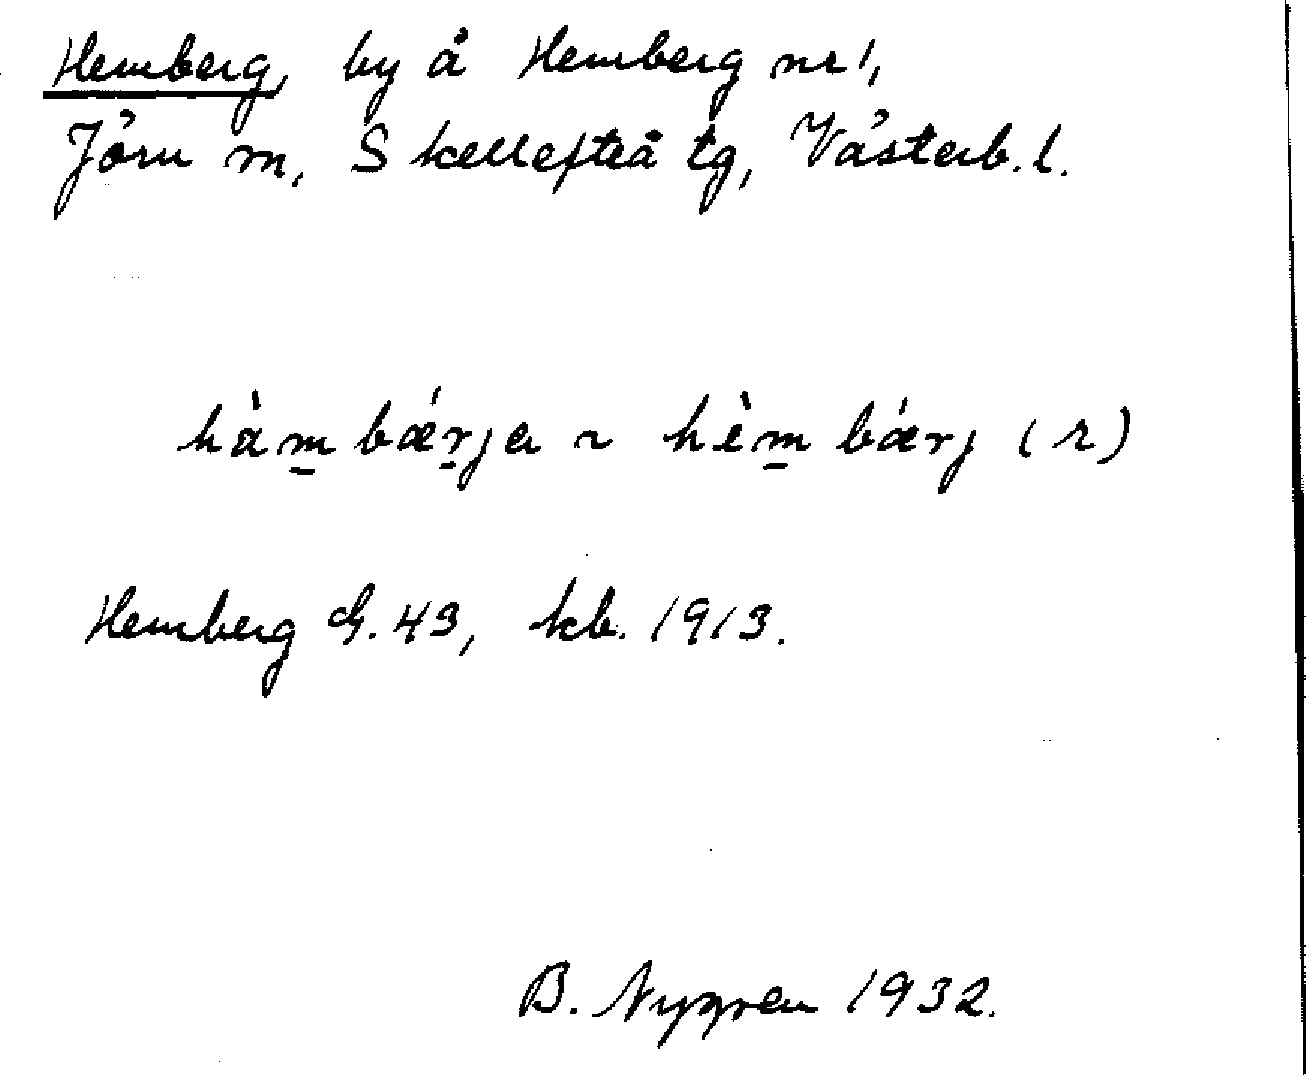 Hemberg, by å Hemberg nr 1,
Jörn m, Skellefteå tg, Västerb. l.
hàm̲ bǽr̲ja ~ hèm̲ bǽrj (r)
Hemberg G. 43, kb. 1913.
B. Nygren 1932.